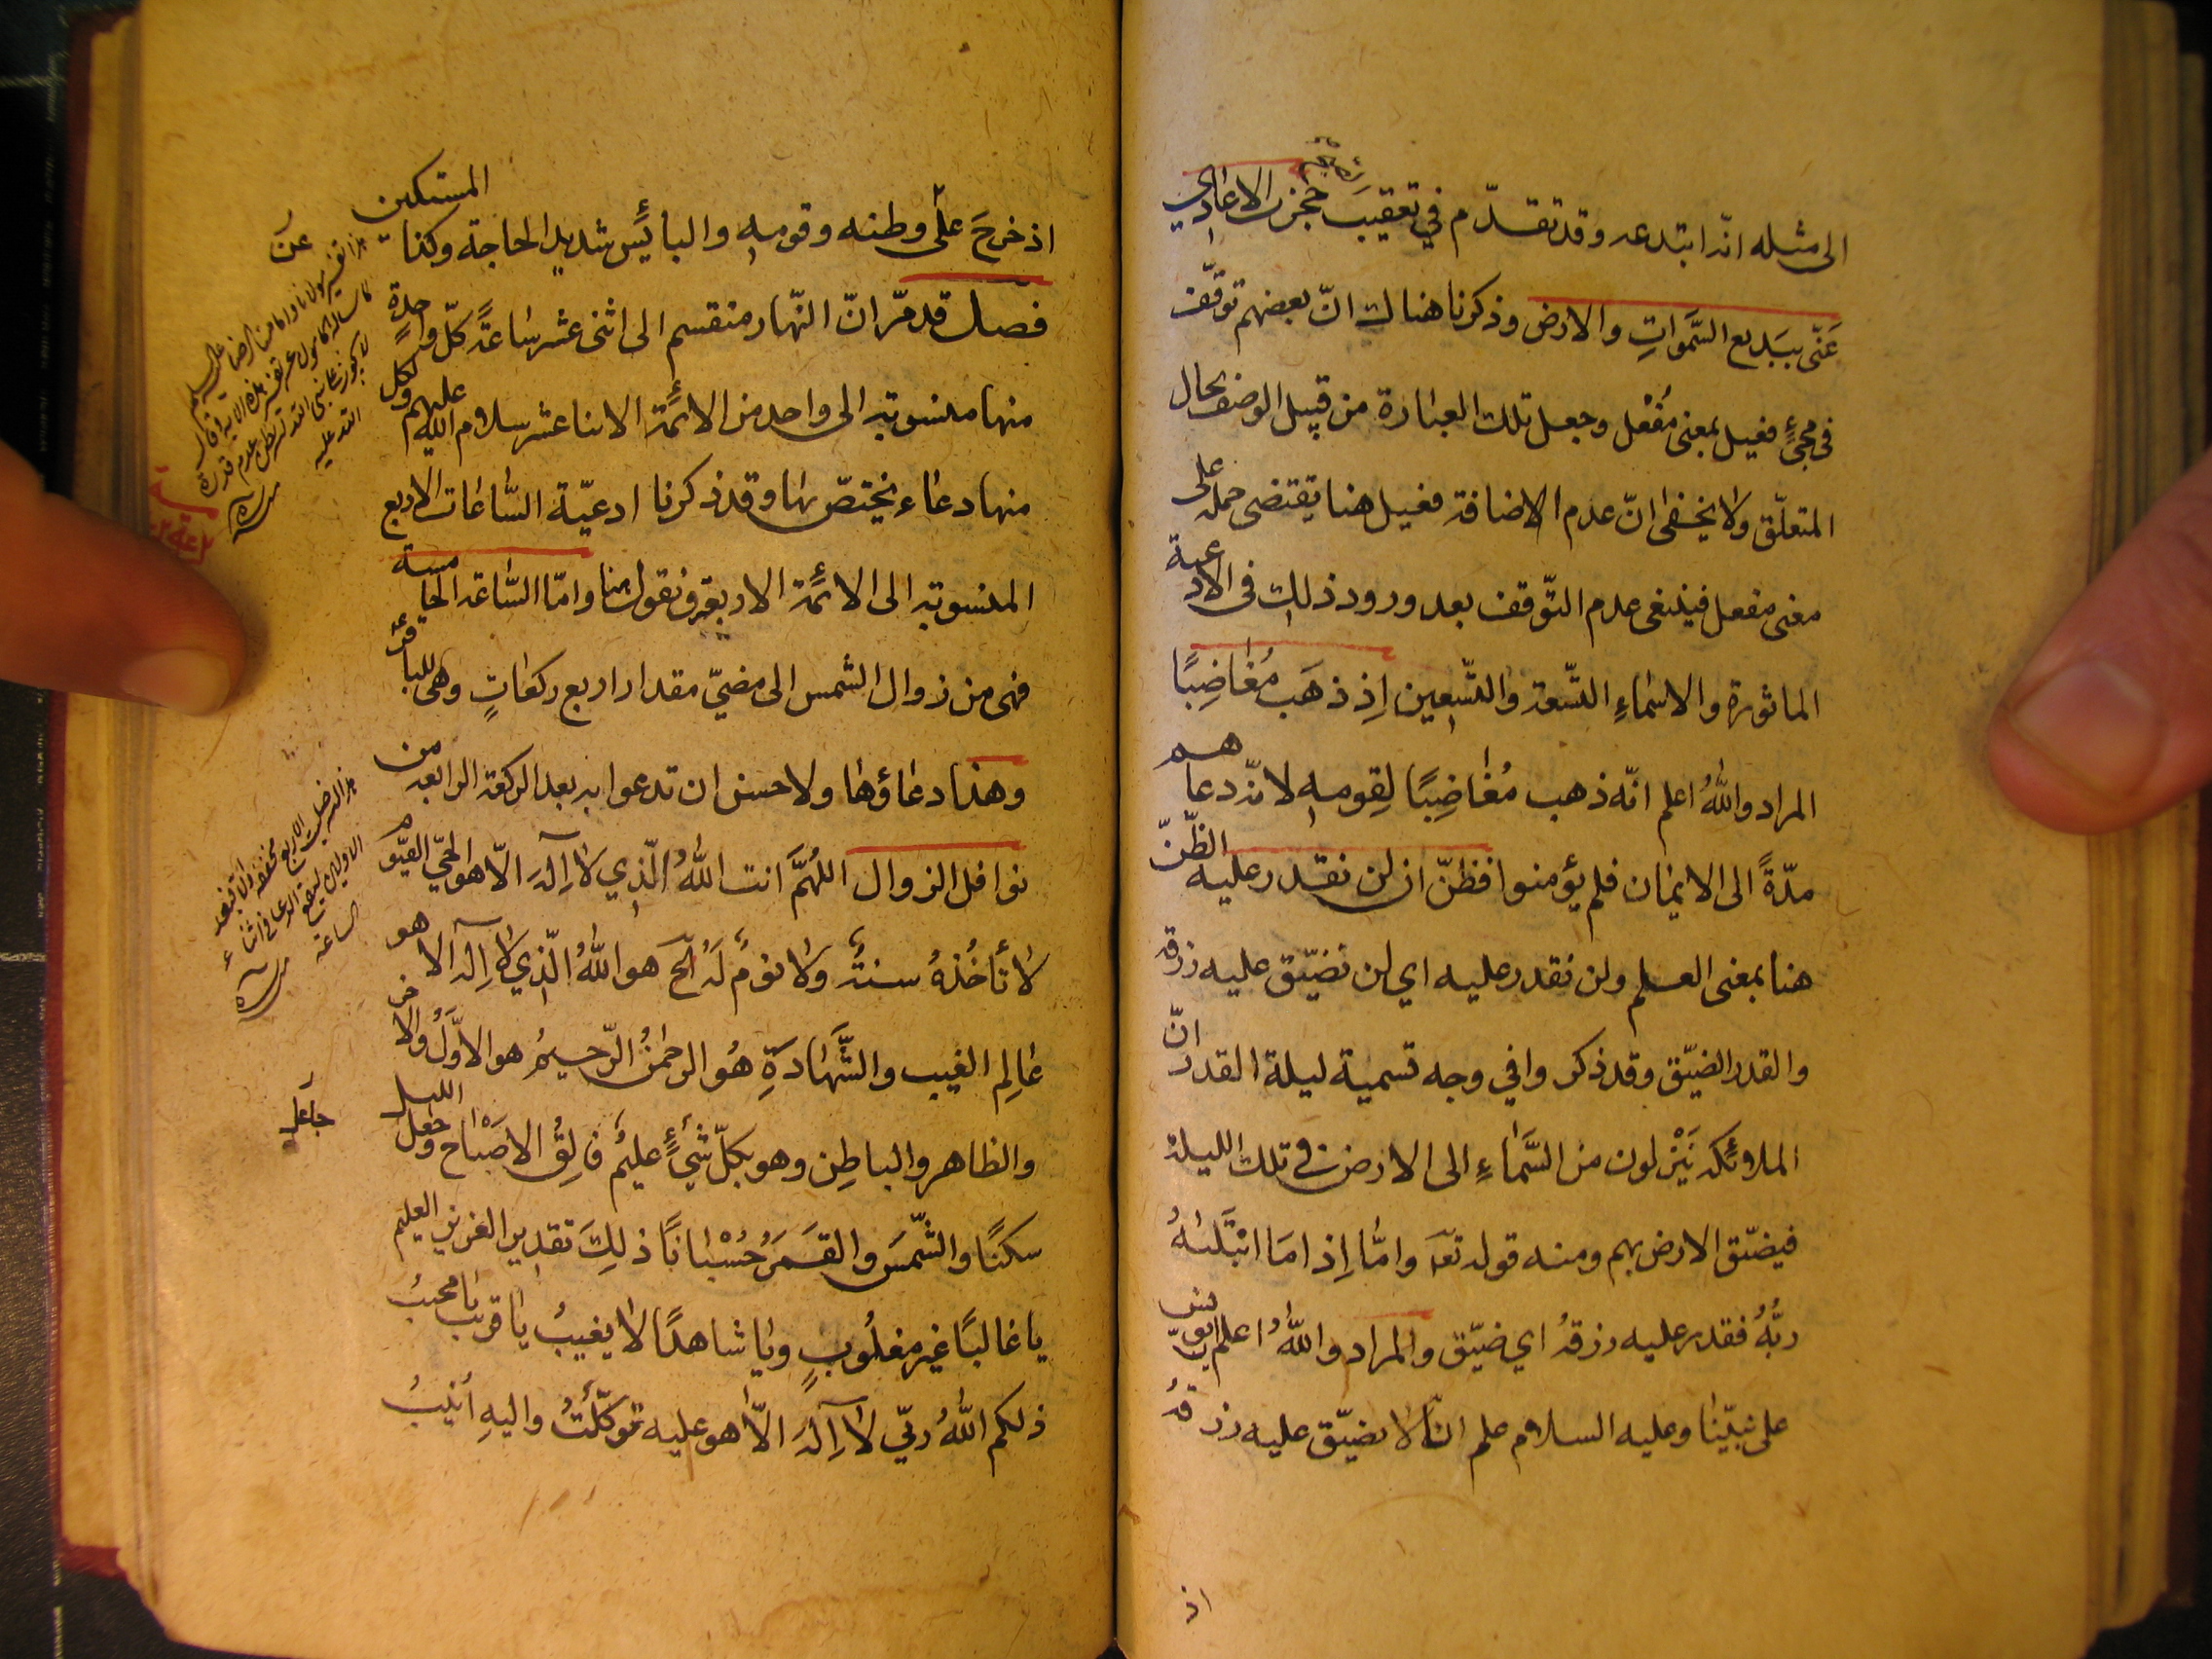 الى مثله انّه ابتدعه وقد تقدّم في تعقيب حجزت الاعادي
عَنّى ببَديع السَّمَواتِ والارض وذكرنا هنالك انّ بعضهم توقّف
فى مجئ فعيل بمعنى مُفْعل وجعل تلك العبارة من قبيل الوصف بحال
المتعلّق ولا يخفى انّ عدم الاضافة فعيل هنا يقتضى حمله على
معنى مفعل فينبغى عدم التّوقف بعد ورود ذلك فى الادعية
الماثورة والاسماءِ التسعة والتسعين اِذ ذهَب مُغاضِبًا
المراد واللهُ اعلم انّه ذهب مُغاضِبًا لِقومه لانّه دعاهم
مدّةً الى الايمان فلم يؤمنوا فظنّ ان لن نقدر عليه الظّنّ
هنا بمعنى العلم ولن نقدر عليه اي لن نضيّق عليه رزقه
والقدر الضيّق وقد ذكروا في وجه تسمية ليلة القدر انّ
الملائكة يَنْزلون من السَّماءِ الى الارض فى تلك الليلة
فيضيّق الارض بهم ومنه قوله تعه وامّا اِذا مَا ابْتَلىٰهُ
ربُّهُ فقدر عليه رزقهُ اي ضيّق والمراد واللهُ اعلم انّ يونس
على نبيّنا وعليه السلام علم انّا لا نضيّق عليه رزقهُ
اذ
اذ خرجَ عَنْ وطنه وقومه والبائس شديد الحاجة وكذا المستكين
عن
فصل قد مرّ انّ النّهار منقسم الى اثنى عشر ساعةً كلّ واحدة
منها منسوبة الى واحد من الائمّة الاثنا عشر سلام الله عليهم ولكل
منها دعاء يختصّ بها وقد ذكرنا ادعيّة السّاعات الاربع
المنسوبة الى الائمّة الاربعة ونقول هنا وامّا السّاعة الخامسة
فهى من زوال الشمس الى مضيّ مقدار اربع ركعاتٍ وهى للباقر
وهذا دعاؤها ولاحسن ان تدعوا به بعد الركعة الرابعة من
نوافل الزوال اللهُمَّ انت اللهُ الّذِي لا اِلٰهَ الّا هو الحيّ القيّوم
لا تأخُذهُ سنةٌ ولا نومٌ هو اللهُ الّذِي لا اِله الا هو
عالِم الغيب والشَّهادَةِ هُو الرحمٰنُ الرّحيمُ هو الاوَّلُ والاخر
والظاهر والباطِن وهو بكلّ شيءٍ عليمٌ فالِقُ الاصبَاح وجعل الليل
جاعل
سكنًا والشّمسَ والقمَرَ حُسْبانًا ذلِكَ تقدير العزيز العليم
يا غالبًا غير مغلُوبٍ ويا شاهدًا لا يغيبُ يا قريب يا مجيبُ
ذلكم اللهُ ربّي لا اِلٰهَ الّا هو عليه توكّلتُ واليهِ اُنيبُ